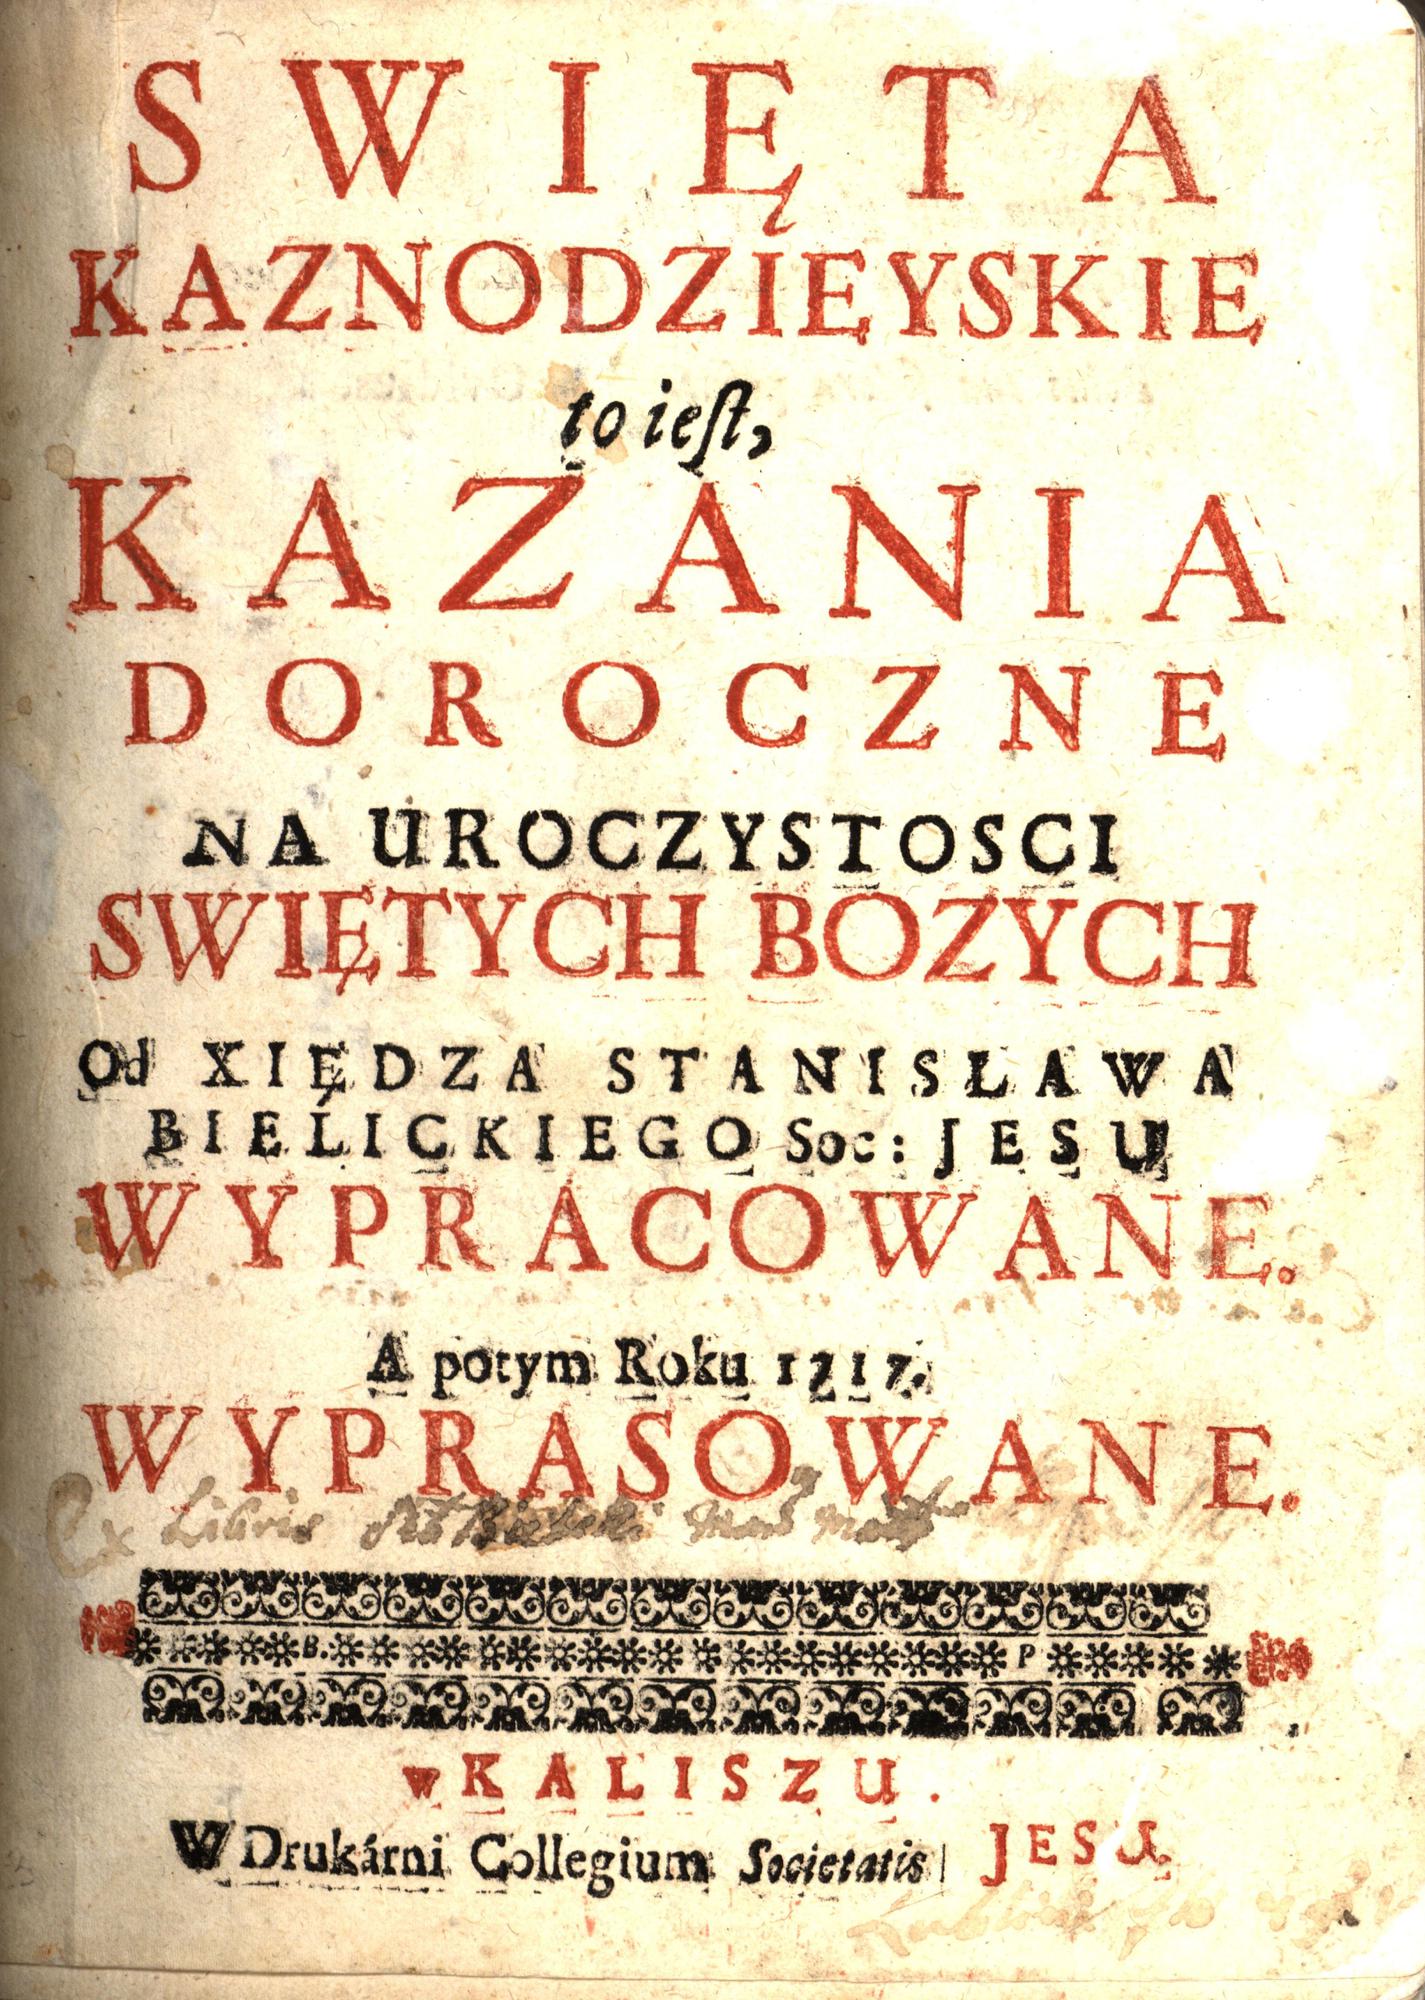 SWIĘTA
KAZNODZIEYSKIE
to ieſt,
KAZANIA
DOROCZNE
NA UROCZYSTOSCI
SWIĘTYCH BOZYCH
Od XIĘDZA STANISŁAWA
BIELICKIEGO Soc: JESU
WYPRACOWANE.
A potym Roku 1717.
WYPRASOWANE.
Ex Libris
B. P
w KALISZU.
W Drukárni Collegium Societatis JESU.